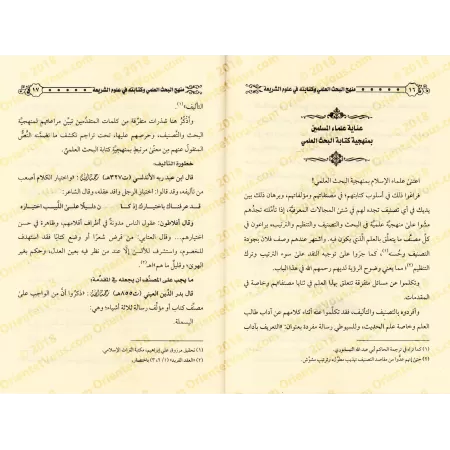 ١٦
منهج البحث العلمي وكتابته في علوم الشريعة
عناية علماء المسلمين
بمنهجية كتابة البحث العلمي
اعتنى علماء الإسلام بمنهجية البحث العلمي!
فراقهوا ذلك في أسلوب كتابتهم؛ في مصنفاتهم ومؤلفاتهم، وبرهان ذلك بين
يديك في أي تصنيف تجده لهم في شتى المجالات المعرفية، إذا تأملته تجدهم
مشوا على منهجية علمية في البحث والتصنيف والتنظيم والترتيب، يراعون في
كل مصنف ما يتعلق بالعلم الذي يكون فيه. واشتهر عندهم وصف فلان بجودة
التصنيف وحسنه(١)، كما جروا على توجيه النقد على سوء الترتيب وترك
التنظيم(٢)؛ مما يعني وضوح الرؤية لديهم رحمهم الله في هذا الباب.
وتكلموا عن مسائل متفرقة تتعلق بهذا العلم في ثنايا مصنفاتهم وخاصة في
المقدمات.
وأفردوه بالتصنيف والتأليف، فقد تكلموا عنه أثناء كلامهم عن آداب طالب
العلم وخاصة علم الحديث، وللسيوطي رسالة مفردة بعنوان: «التعريف بآداب
(١) كما تراه في ترجمة الحاكم أبي عبد الله النيسابوري.
(٢)
منهج البحث العلمي وكتابته في علوم الشريعة
١٧
التأليف»(١).
وأذكر هنا شذرات متفرقة من كلمات المتقدمين تبين مراعاتهم لمنهجية
البحث والتصنيف، وحرصهم عليها، تحت تراجم تكشف ما تضمنه النقل
المنقول عنهم من معنى مرتبط بمنهجية كتابة البحث العلمي.
خطورة التأليف
قال ابن عبد ربه الأندلسي (ت٣٢٧هـ) رحمه الله: «واختيار الكلام أصعب
من تأليفه، وقد قالوا: اختيار الرجل وافد عقله. وقال الشاعر:
قد عرفناك باختيارك إذ كا ن دليلا على اللبيب اختياره
وقال أفلاطون: عقول الناس مدونة في أطراف أقلامهم، وظاهرة في حسن
اختيارهم... وقال العتابي: من قرض شعرا أو وضع كتابا فقد استهدف
للخصوم، واستشرف للألسن إلا عند من نظر فيه بعين العدل، وحكم بغير
الهوى؛ وقليل ما هم»(٢).
ما يجب على المصنف أن يجعله في المقدمة:
قال بدر الدين العيني (ت٨٥٥هـ) رحمه الله: «ذكروا أن من الواجب على
مصنف كتاب أو مؤلف رسالة ثلاثة أشياء؛ وهي:
البسملة.
(١) تحقيق مرزوق علي إبراهيم، مكتبة التراث الإسلامي.
(٢) «العقد الفريد» (١/ ٢، ٣) باختصار.